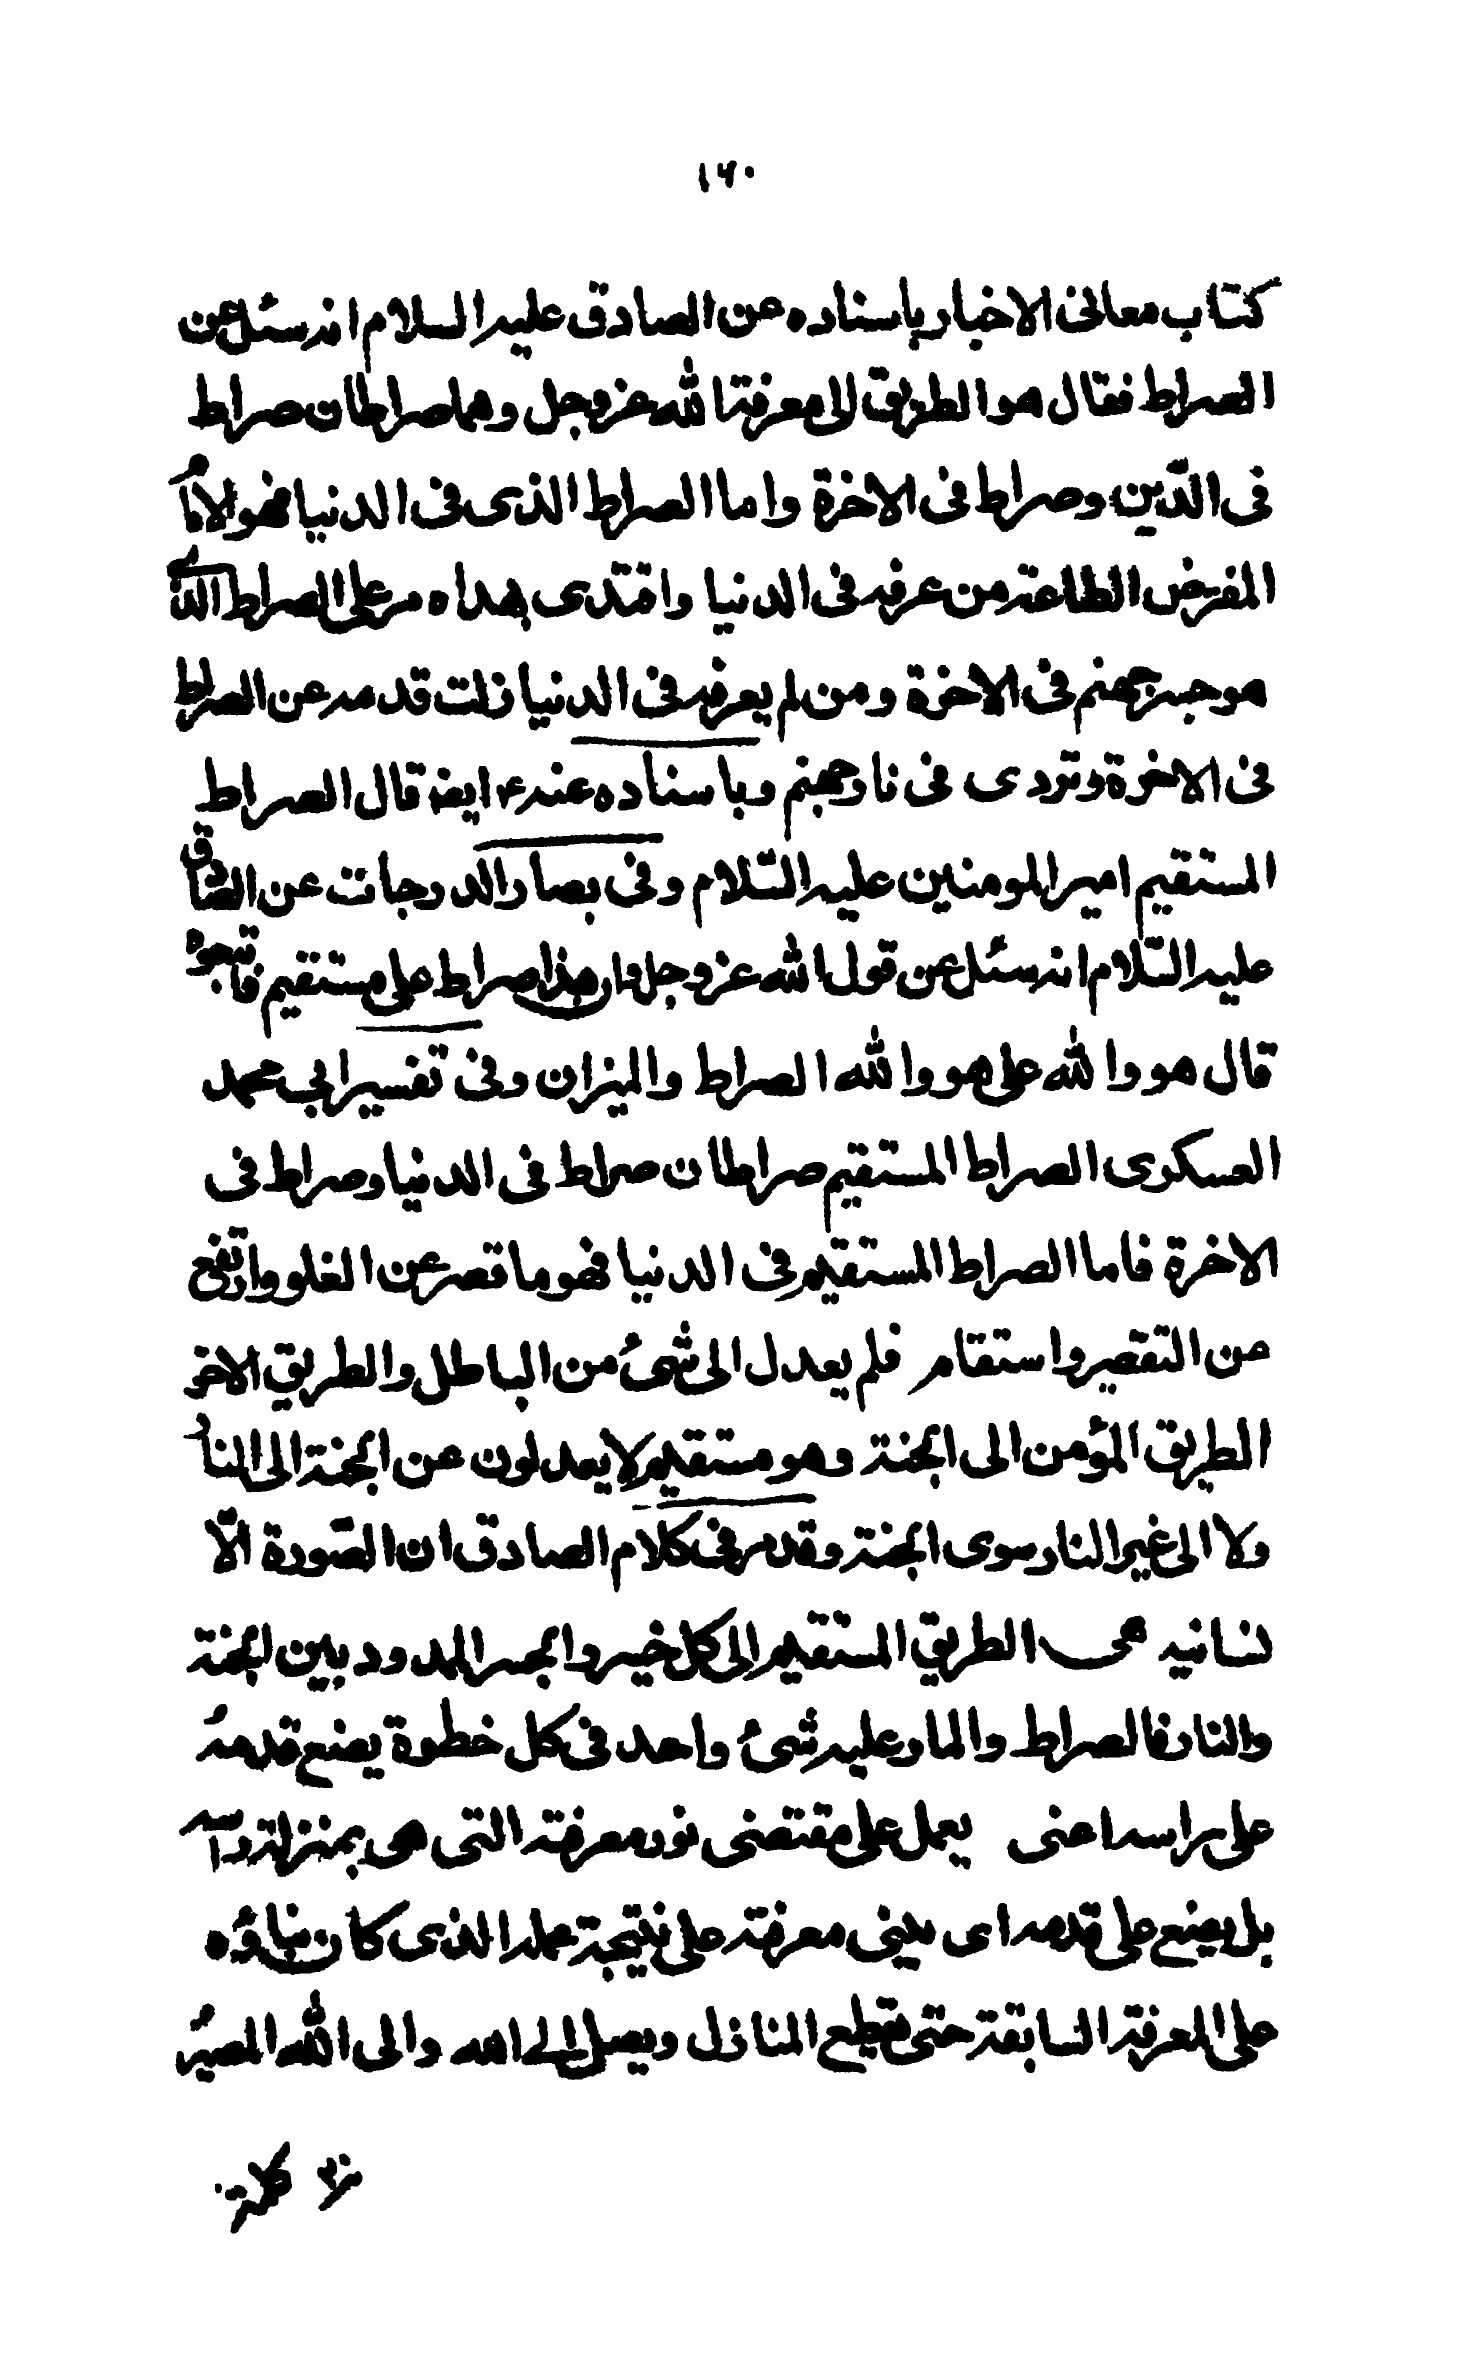 ١٦٠
كتاب معانى الاخبار باسناده عن الصادق عليه السلام انه سئل عن
الصراط فقال هو الطريق الى معرفة الله عز وجل وهما صراطان صراط
فى الدّين وصراط فى الاخرة واما الصراط الذى فى الدنيا فهو الامامُ
المفرض الطاعة من عرفه فى الدنيا واقتدى بهداه مر على الصراط الذى
هو جسر جهنم فى الاخرة ومن لم يعرفه فى الدنيا زلت قدمه عن الصراط
فى الاخرة وتردى فى نار جهنم وباسناده عنه ع ايضا قال الصراط
المستقيم امير المومنين عليه السّلام وفى بصائر الدرجات عن الصّادق
عليه السّلام انه سئل عن قول الله عز وجل وان هذا صراط على مستقيم فاتبعوه
قال هو والله على هو والله الصراط والميزان وفى تفسير ابي محمد
العسكرى الصراط المستقيم صراطان صراط فى الدنيا وصراط فى
الاخرة فاما الصراط المستقيم فى الدنيا فهو ما قصر عن الغلو وارتفع
من التقصير واستقام فلم يعدل الى شىءُ من الباطل والطريق الاخر
الطريق المؤمن الى الجنة وهو مستقيم لا يعدلون عن الجنة الى النار
ولا الى غير النار سوى الجنة وقد مر فى كلام الصادق ان الصّورة الا
نسانيه هى الطريق المستقيم الى كل خير والجسر الممدود بين الجنة
والنار فالصراط والمار عليه شىءُ واحد فى كل خطوة يضع قدمهُ
على راسه اعنى يعمل على مقتضى نور معرفته التى هى بمنزلة راسه
بل يضع على قدمه اى يبنى معرفته على نتيجة عمله الذى كان بناؤُه
على المعرفة السابقة حتى يقطع المنازل ويصل الى الله والى الله المصيرُ
كلمة